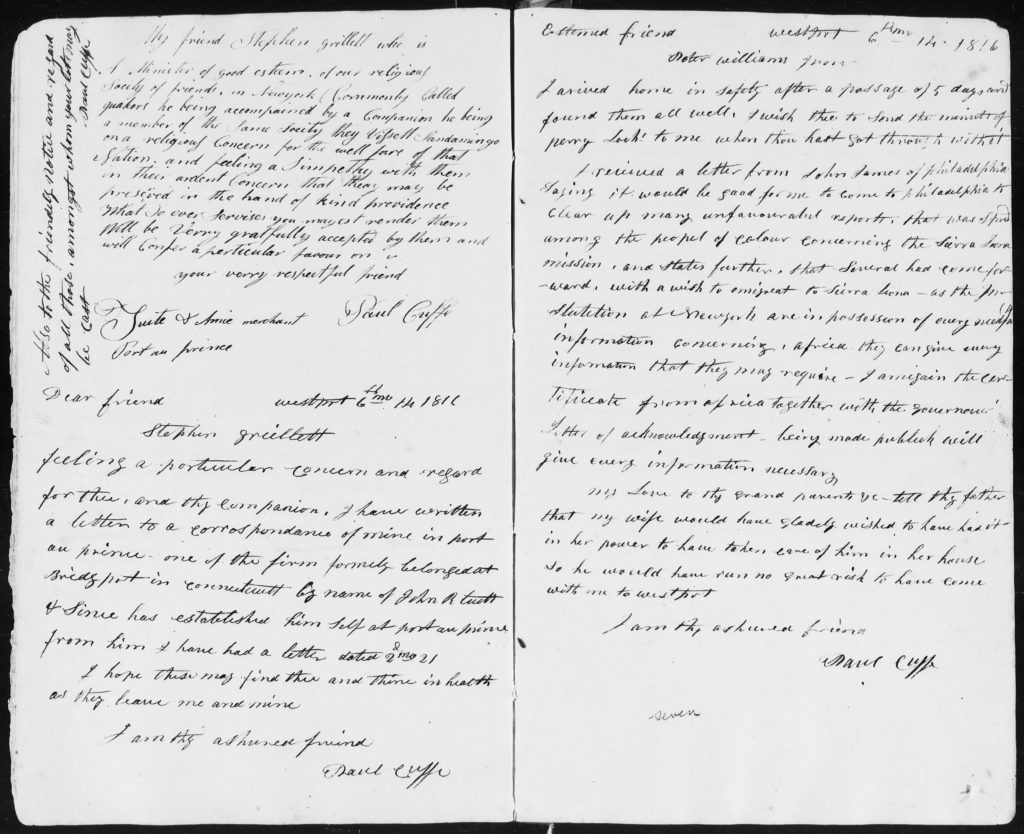 My friend Stephen grillett who is
A Minister of good esteem, of our religious
Society of friends, in Newyork (Commonly Called
quakers he being accompained by a Companion he being
a member of the Same Society they Visett Sandamingo
on a religious Concern for the well fare of that
Nation. and feeling a Simpathy with them
in their ardent Concern that theay may be
preserved in the hand of kind providence
What So ever Servises you may render them
Will be Verry gratfully accepted by them and
will Confer a particular favour on
your verry respectful friend
Paul Cuffe
merchant
Port au prince
Also to the friendly notice and regard
of all those, amongst whom your lots may
be cast Paul Cuffe
Dear friend westport 6th mo 14 1816
Stephen grillett
feeling a porticular concern and regard
for thee, and thy companion. I have written
a letter to a corrospondance of mine in port
au prince. one of the firm formely belonged at
Bridgport in connetticutt by name of John R
& Sinie has established him self at port au prince
from him I have had a letter dated 21
I hope these may find thee and thine in health
as they leave me and mine
I am thy ashured friend
Paul Cuffe
Esteemed friend westport 6th mo 14. 1816
Peter williams Jron
I arived home in safety after a passage of 5 days and
found them all well. I wish thee to Send the minuts of
perry Lock: to me when thou hast got through with it
I received a letter from John James of philadelphia
Saying it would be good for me to come to philadelphia to
clear up many unfavourabel reports, that was
among the peopel of colour concerning the Sierra Leona
mission, and States further, that Several had come for
-ward, with a wish to emigreat to Sierra Leona - as the In
stetetion at Newyork are in possession of every needful
information concerning, africa they can give every
information that they may require - I am again the cer
tificate from africa together with the governours
Letter of acknowledgment - being made publick will
give every information necessary
my Love to thy grand parents &c - tell thy father
that my wife would have gladely wished to have had it
in her power to have taken care of him in her house
So he would have run no great risk to have come
with me to westport
I am thy ashured friend
Paul Cuffe
seven